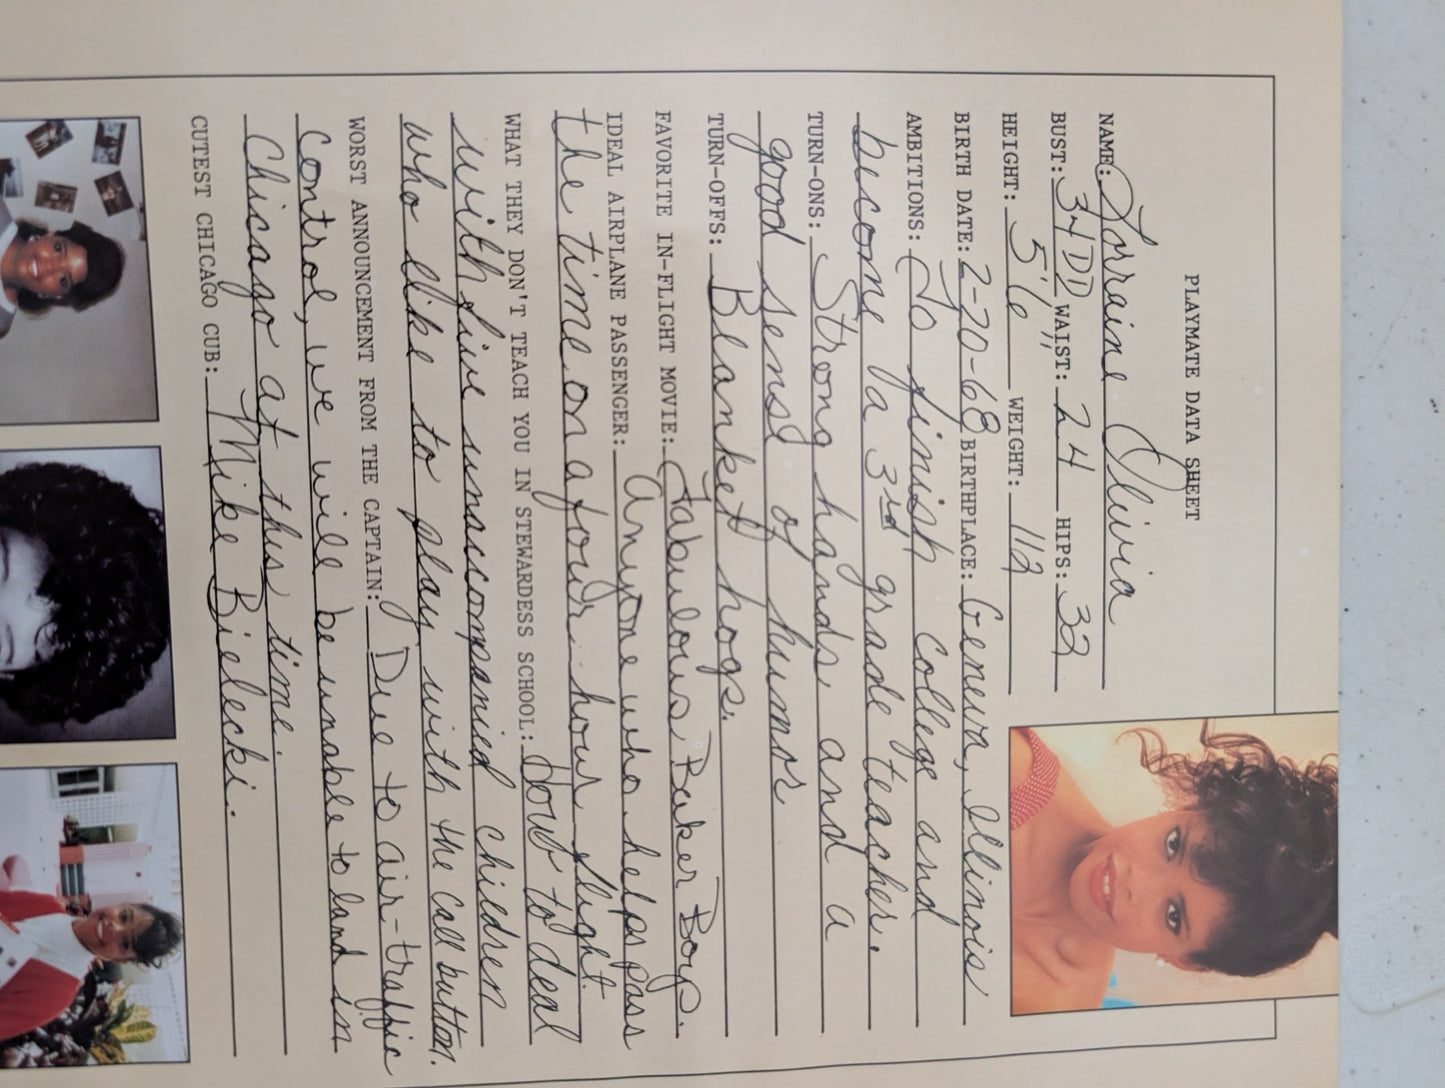 PLAYMATE DATA SHEET
NAME: Lorraine Olivia
BUST: 34DD WAIST: 24 HIPS: 32
HEIGHT: 5'6" WEIGHT: 112
BIRTH DATE: 2-20-68 BIRTHPLACE: Geneva, Illinois
AMBITIONS: To finish college and
become a 3rd grade teacher.
TURN-ONS: Strong hands and a
good sense of humor
TURN-OFFS: Blanket hogs.
FAVORITE IN-FLIGHT MOVIE: Fabulous Baker Boys.
IDEAL AIRPLANE PASSENGER: Anyone who helps pass
the time on a four-hour flight.
WHAT THEY DON'T TEACH YOU IN STEWARDESS SCHOOL: How to deal
with five unaccompanied children
who like to play with the call button.
WORST ANNOUNCEMENT FROM THE CAPTAIN: Due to air-traffic
control, we will be unable to land in
Chicago at this time.
CUTEST CHICAGO CUB: Mike Bielecki.